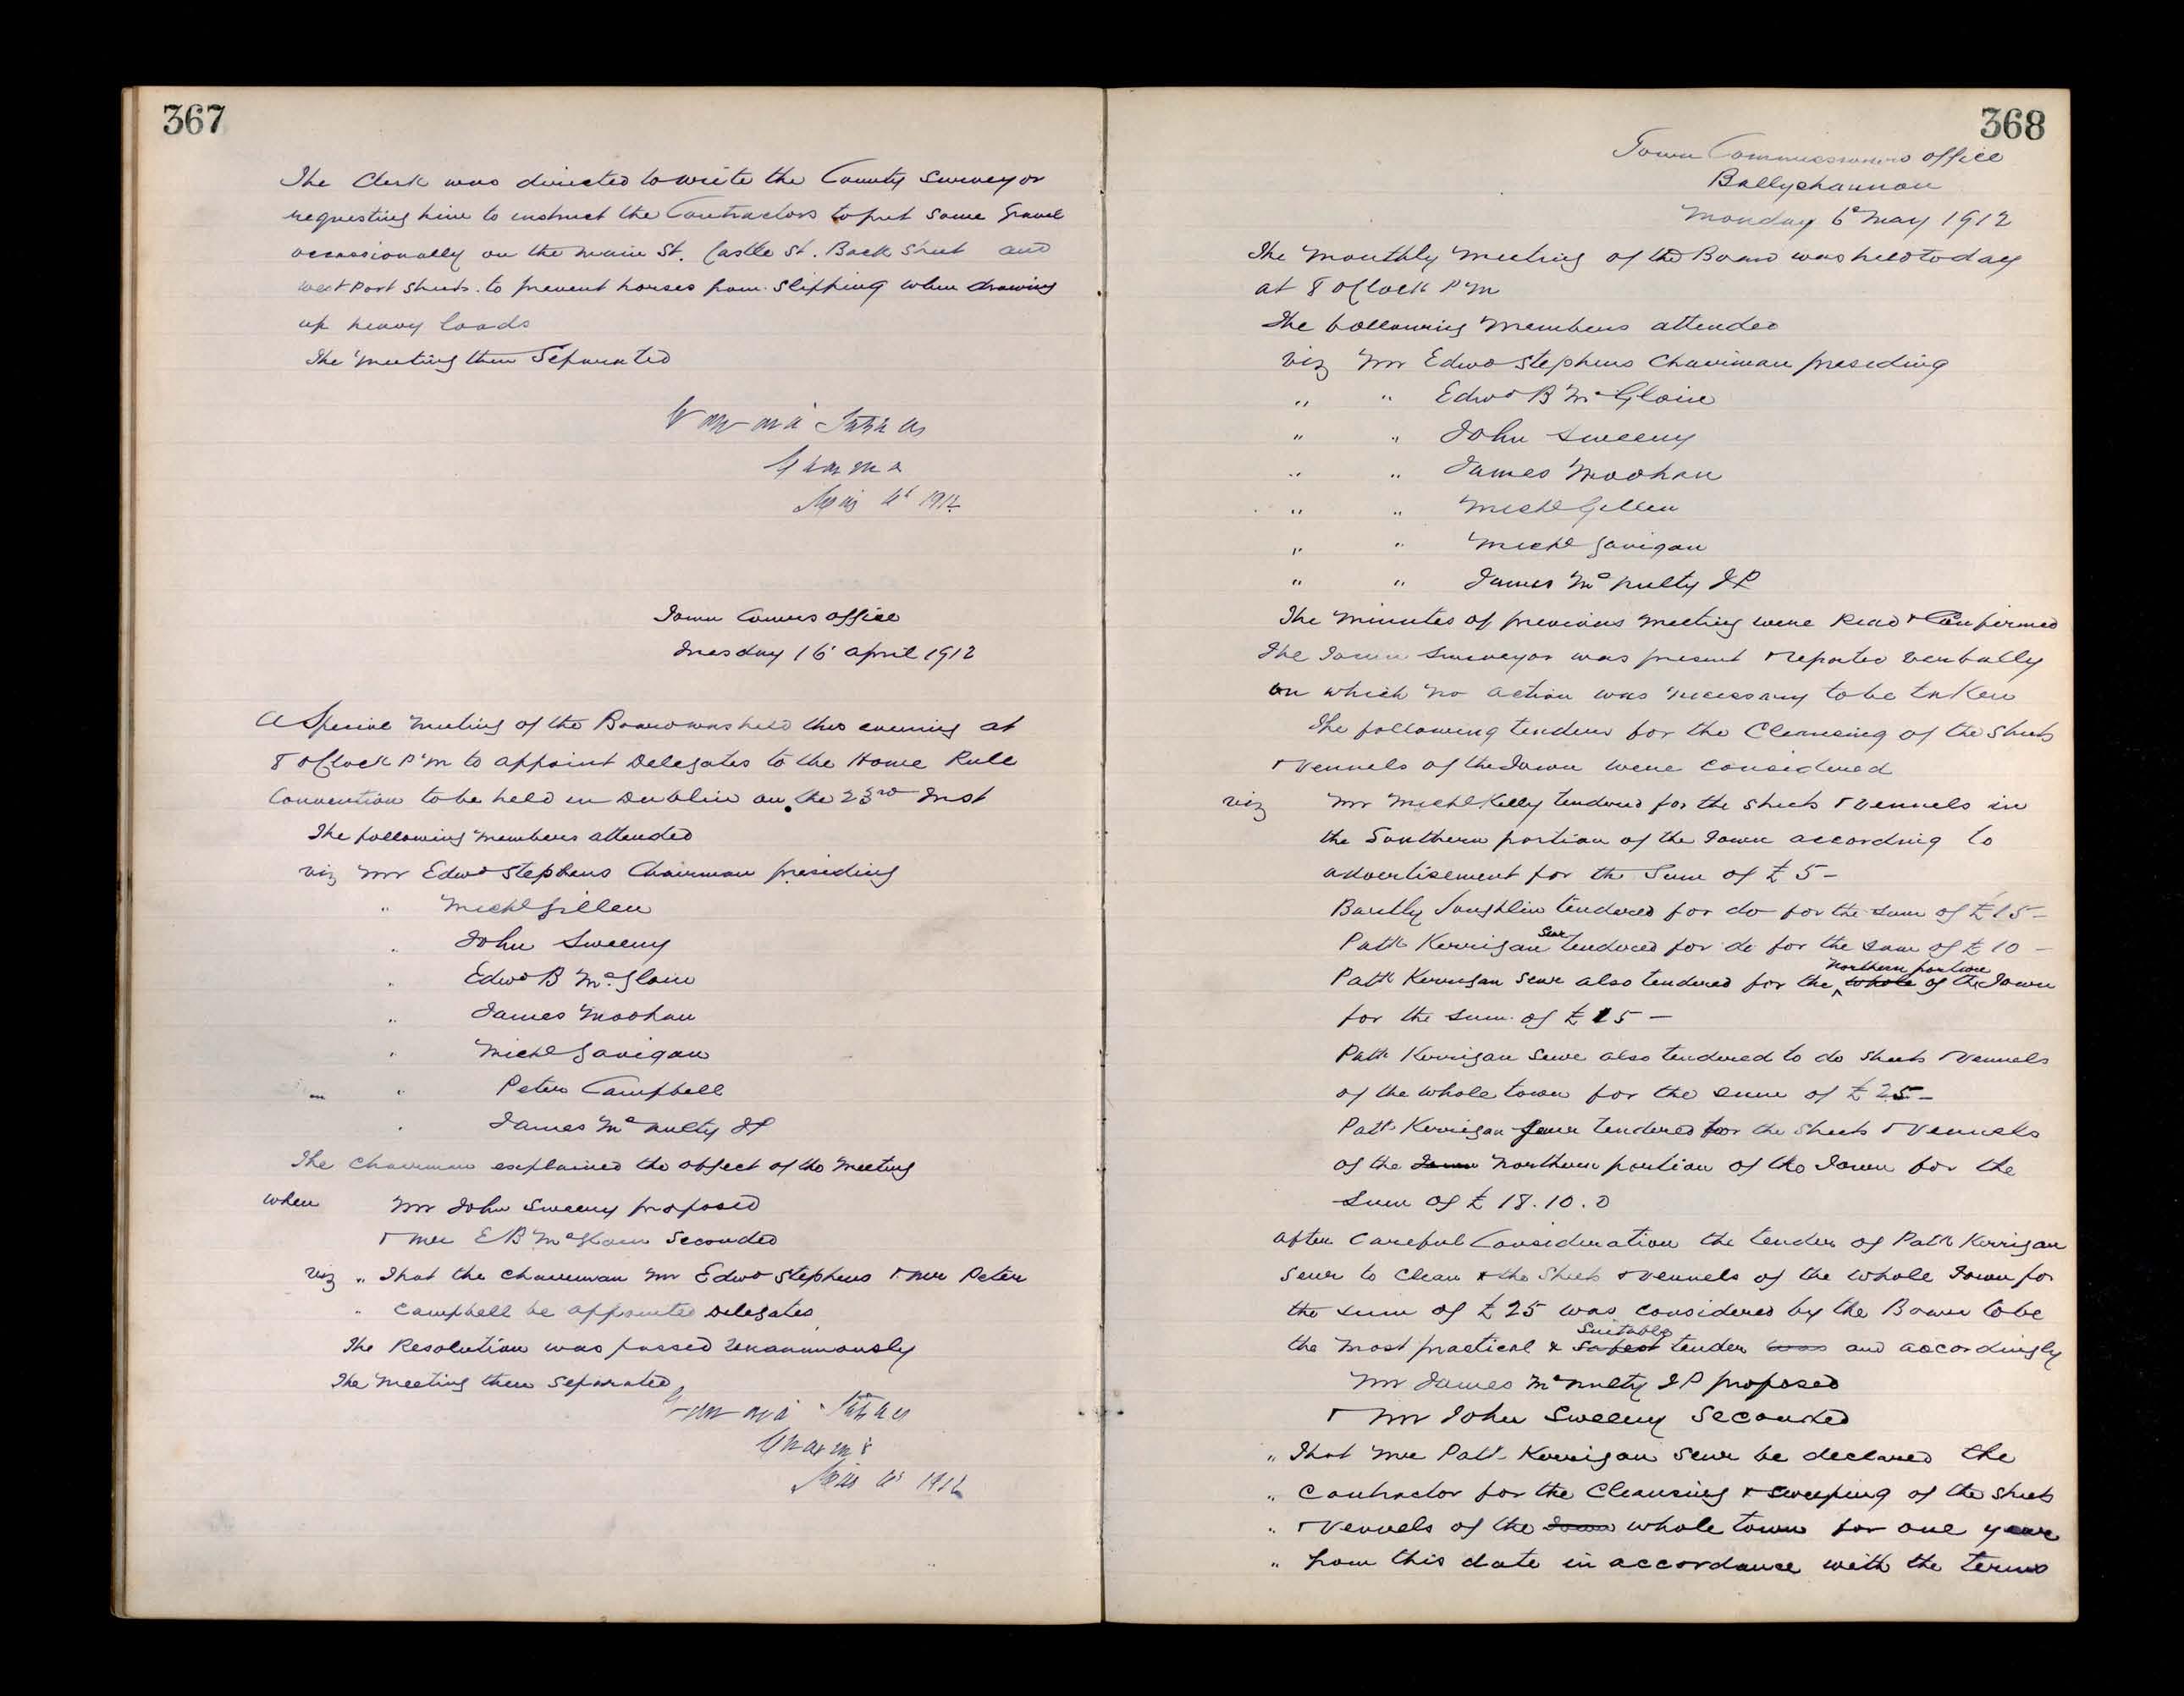 367
The Clerk was directed to write the County Surveyor
requesting him to instruct the Contractors to put some Gravel
occassionally on the Main St. Castle St. Back Street and
West Port Streets. to prevent horses from slipping when drawing
up heavy loads
The Meeting then Separated
1912
Town Comrs office
Tuesday 16 April 1912
A Special Meeting of the Board was held this evening at
8 oClock P.M to appoint Delegates to the Home Rule
Convention to be held in Dublin on the 23rd Inst
The following Members attended
viz Mr Edwd Stephens Chairman presiding
" Michl Gillen
" John Sweeny
" Edwd B McGloin
" James Moohan
" Michl Gavigan
" Peter Campbell
" James McNulty JP
The Chairman explained the object of the Meeting
when Mr John Sweeny proposed
& Mr E B McGloin Seconded
viz " That the Chairman Mr Edwd Stephens & Mr Peter
" Campbell be appointed Delegates
The Resolution was passed unanimously
The Meeting then Separated
1912
368
Town Commissioners office
Ballyshannon
Monday 6th May 1912
The Monthly Meeting of the Board was held today
at 8 oClock P M
The following Members attended
viz Mr Edwd Stephens Chairman presiding
" " Edwd B McGloin
" " John Sweeny
" " James Moohan
" " Michl Gillen
" " Michl Gavigan
" " James McNulty JP
The Minutes of previous Meeting were Read & Confirmed
The Town Surveyor was present & reported verbally
on which no action was necessary to be taken
The following tenders for the Cleansing of the Streets
& Vennels of the Town were Considered
viz Mr Michl Kelly tendered for the Streets & Vennels in
the Southern portion of the Town according to
advertisement for the Sum of £5-
Bartly Loughlin tendered for do for the sum of £15-
Patk Kerrigan Senr tendered for do for the sum of £10-
Patk Kerrigan Senr also tendered for the whole Northern portion of the Town
for the sum of £15-
Patk Kerrigan Senr also tendered to do Streets & Vennels
of the whole town for the sum of £25-
Patk Kerrigan Junr tendered for the Streets & Vennels
of the Town Northern portion of the Town for the
Sum of £18.10.0
after Careful Consideration the tender of Patk Kerrigan
Senr to Clean & the Streets & Vennels of the whole Town for
the sum of £25 was considered by the Board to be
the most practical & safest Suitable tender was and accordingly
Mr James McNulty JP proposed
& Mr John Sweeny Seconded
" That Mr Patk Kerrigan Senr be declared the
" Contractor for the Cleansing & Sweeping of the Streets
" & Vennels of the Town whole town for one year
" from this date in accordance with the terms